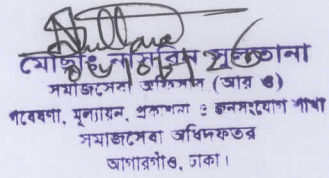 সুলতানা
সমাজসেবা অফিসার (আর ও)
গবেষণা, মূল্যায়ন, প্রকাশনা ও জনসংযোগ শাখা
সমাজসেবা অধিদফতর
আগারগাঁও, ঢাকা।